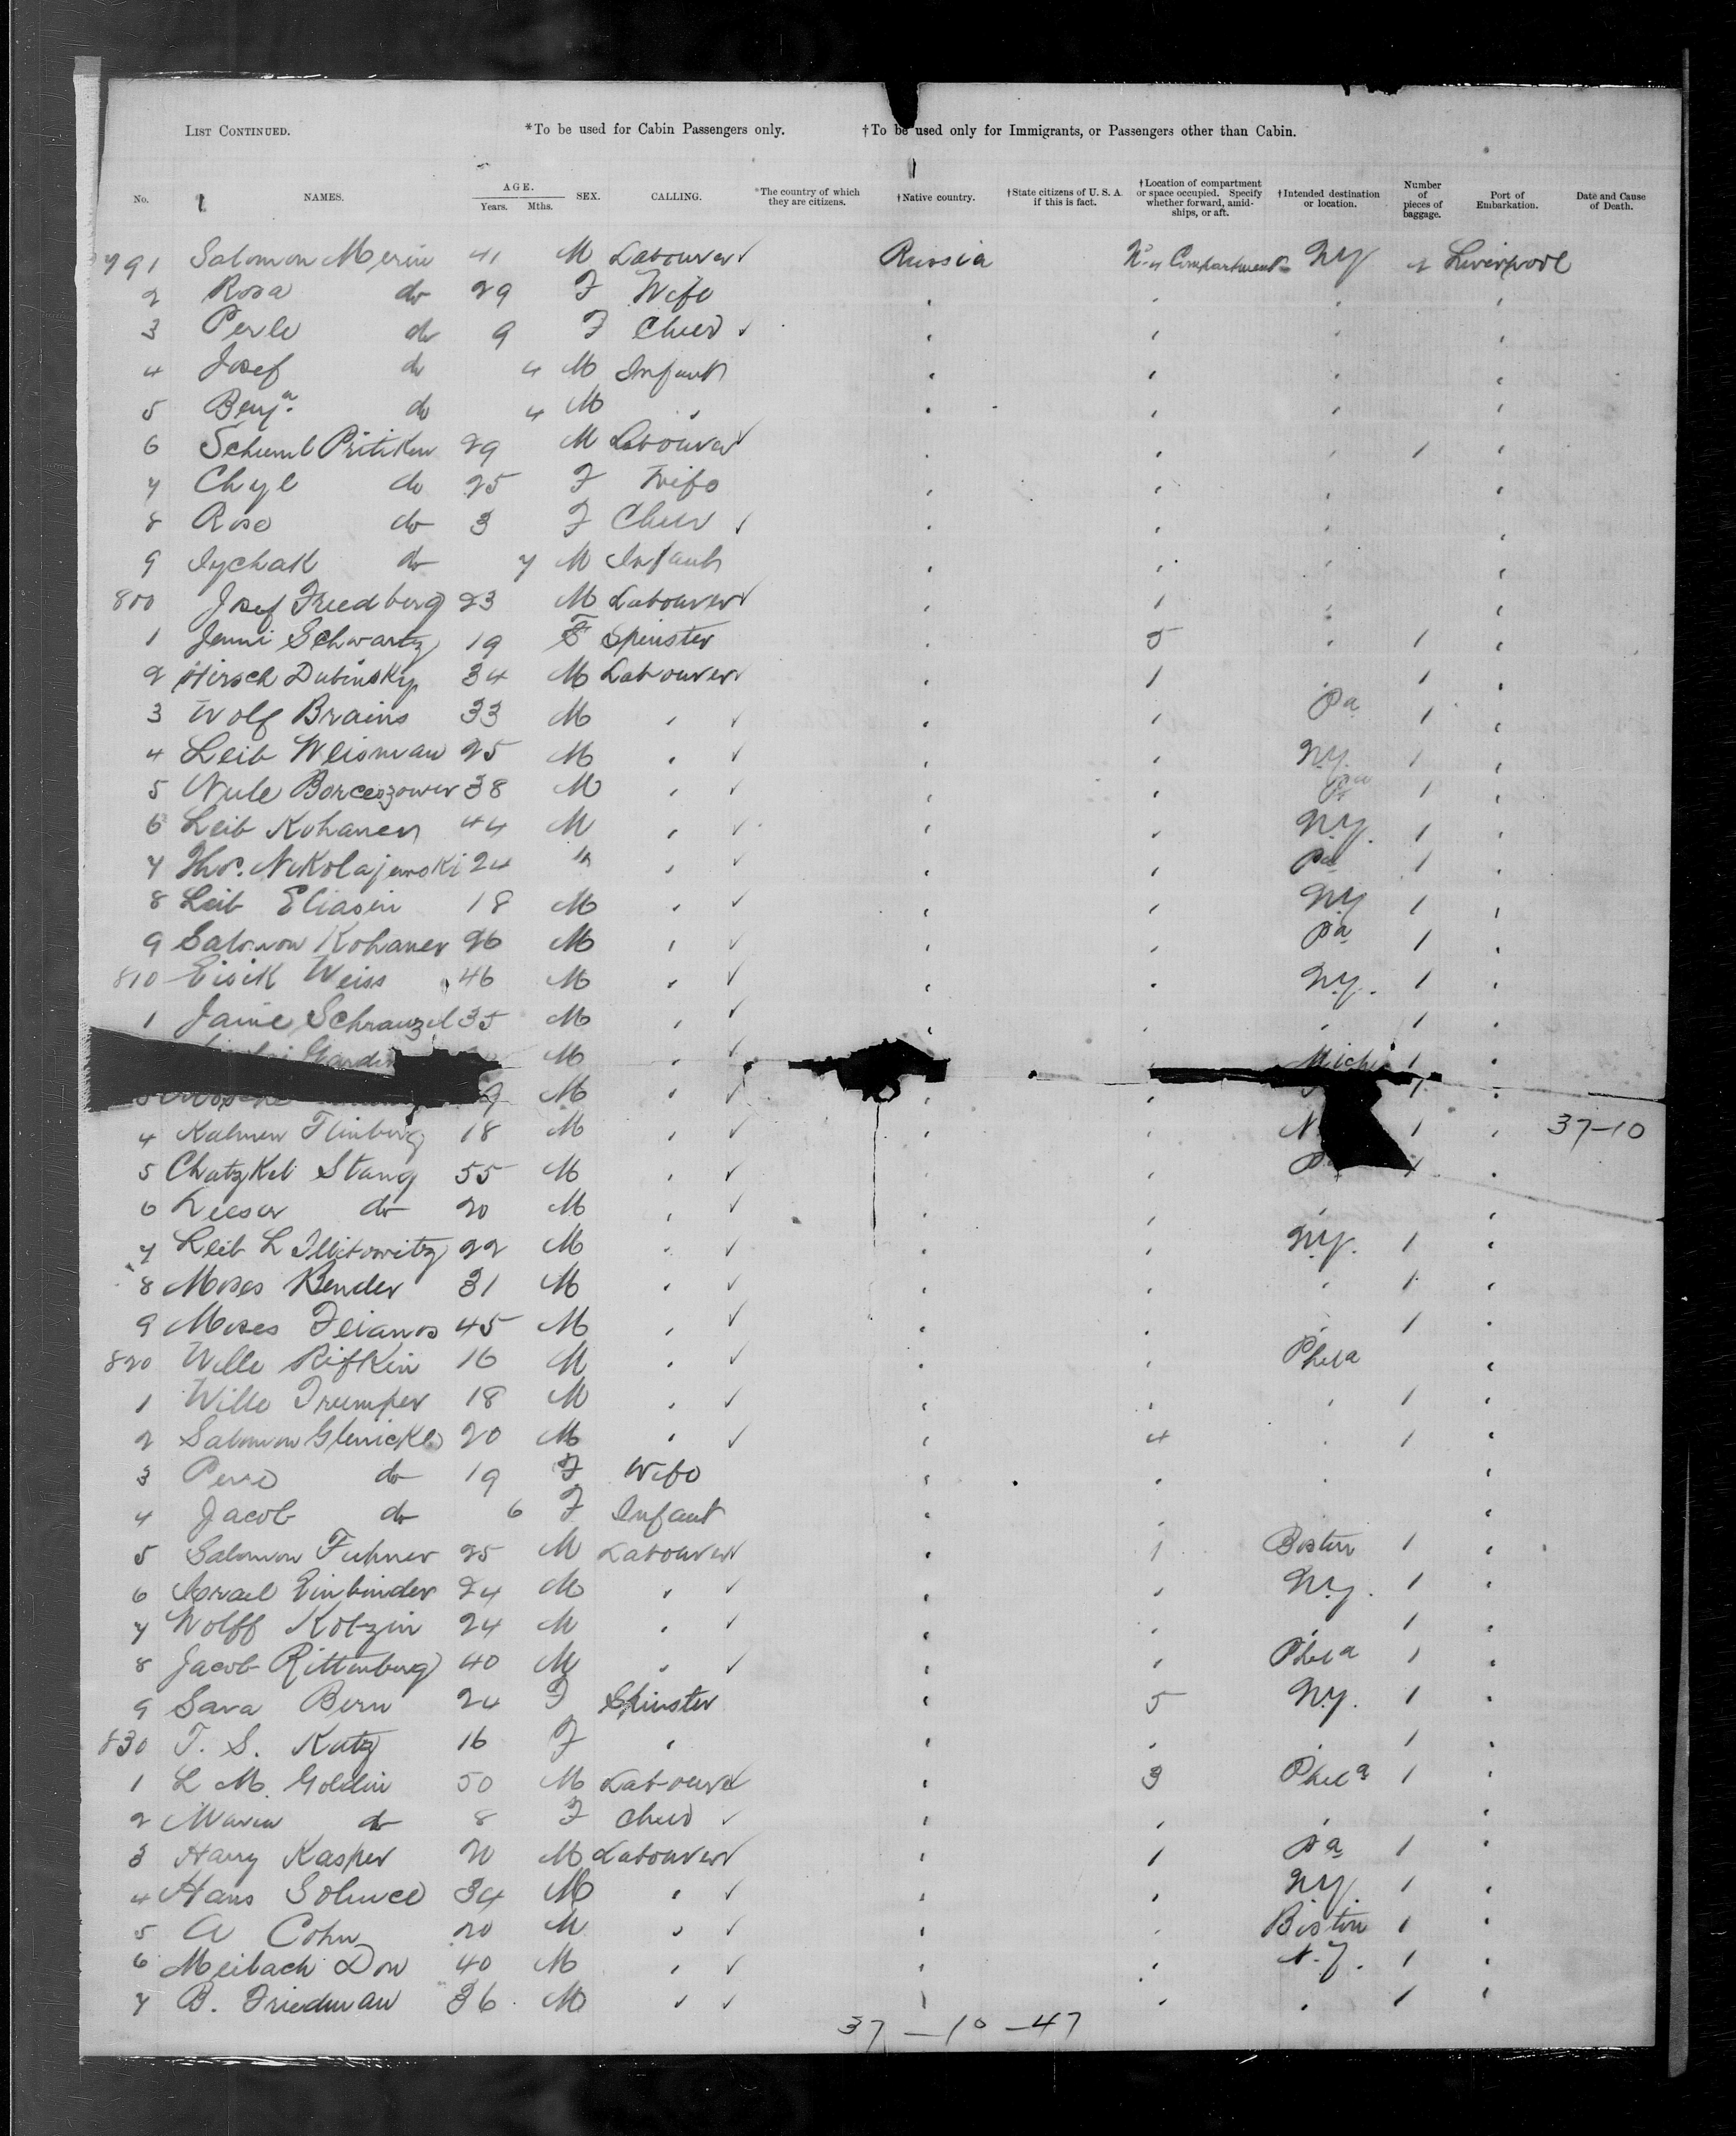 LIST CONTINUED. *To be used for Cabin Passengers only. †To be used only for Immigrants, or Passengers other than Cabin.
No. NAMES. AGE. Years. Mths. SEX. CALLING. *The country of which they are citizens. †Native country. †State citizens of U. S. A. if this is fact. †Location of compartment or space occupied. Specify whether forward, amidships, or aft. †Intended destination or location. Number of pieces of baggage. Port of Embarkation. Date and Cause of Death.
791 Salomon Merin 41 M Labourer ✓ Russia Compartment NY Liverpool
2 Rosa do 29 F Wife
3 Perle do 9 F Child ✓
4 Josef do 4 M Infant
5 Benjn. do 4 M "
6 Pritiken 29 M Labourer ✓ 1
7 Chyl do 25 F Wife
8 Rose do 3 F Child ✓
9 do 7 M Infant
800 Josef Friedberg 23 M Labourer ✓ 1
1 Jenni Schwartz 19 F Spinster 5 1
2 Hirsch Dubinsky 34 M Labourer ✓ 1 1
3 Wolf Brains 33 M " ✓ Pa 1
4 Leib Weisman 25 M " ✓ N.Y. 1
5 Nule 38 M " ✓ 1
6 Leib Kohaner 44 M " ✓ N.Y. 1
7 Nikolajewski 24 " " ✓ Pa 1
8 Leib Eliasin 18 M " ✓ NY 1
9 Salomon Kohaner 26 M " ✓ Pa 1
810 Eisik Weiss 46 M " ✓ N.Y. 1
1 35 M " ✓ " 1
M " ✓ Mich 1
9 M " ✓
4 Kalmen 18 M " ✓ N 1 37-10
5 Chatzkel Stang 55 M " ✓ 1
6 Leeser do 20 M " ✓ "
7 Leib L 22 M " ✓ N.Y. 1
8 Moses Bender 31 M " ✓ " 1
9 Moses 45 M " ✓ " 1
820 Wille Rifkin 16 M " ✓ Phila
1 Wille Trumper 18 M " ✓ " 1
2 Salomon Glenickle 20 M " ✓ 4 " 1
3 do 19 F Wife
4 Jacob do 6 F Infant
5 Salomon 25 M Labourer ✓ 1 Boston 1
6 Israel Einbinder 24 M " ✓ N.Y. 1
7 Wolff Kotzin 24 M " ✓ " 1
8 Jacob Rittenberg 40 M " ✓ Phila 1
9 Sara Bern 24 F Spinster 5 N.Y. 1
830 T. S. Katz 16 F " 1
1 L M. Goldin 50 M Labourer ✓ 3 Phila 1
2 do 8 F Child ✓
3 Harry Kasper 20 M Labourer ✓ 1 Pa 1
4 Hans 34 M " ✓ N.Y. 1
5 A Cohn 20 M " ✓ Boston 1
6 Meibach Don 40 M " ✓ N.Y. 1
7 B. Friedman 36 M " ✓ " 1
37-10-47